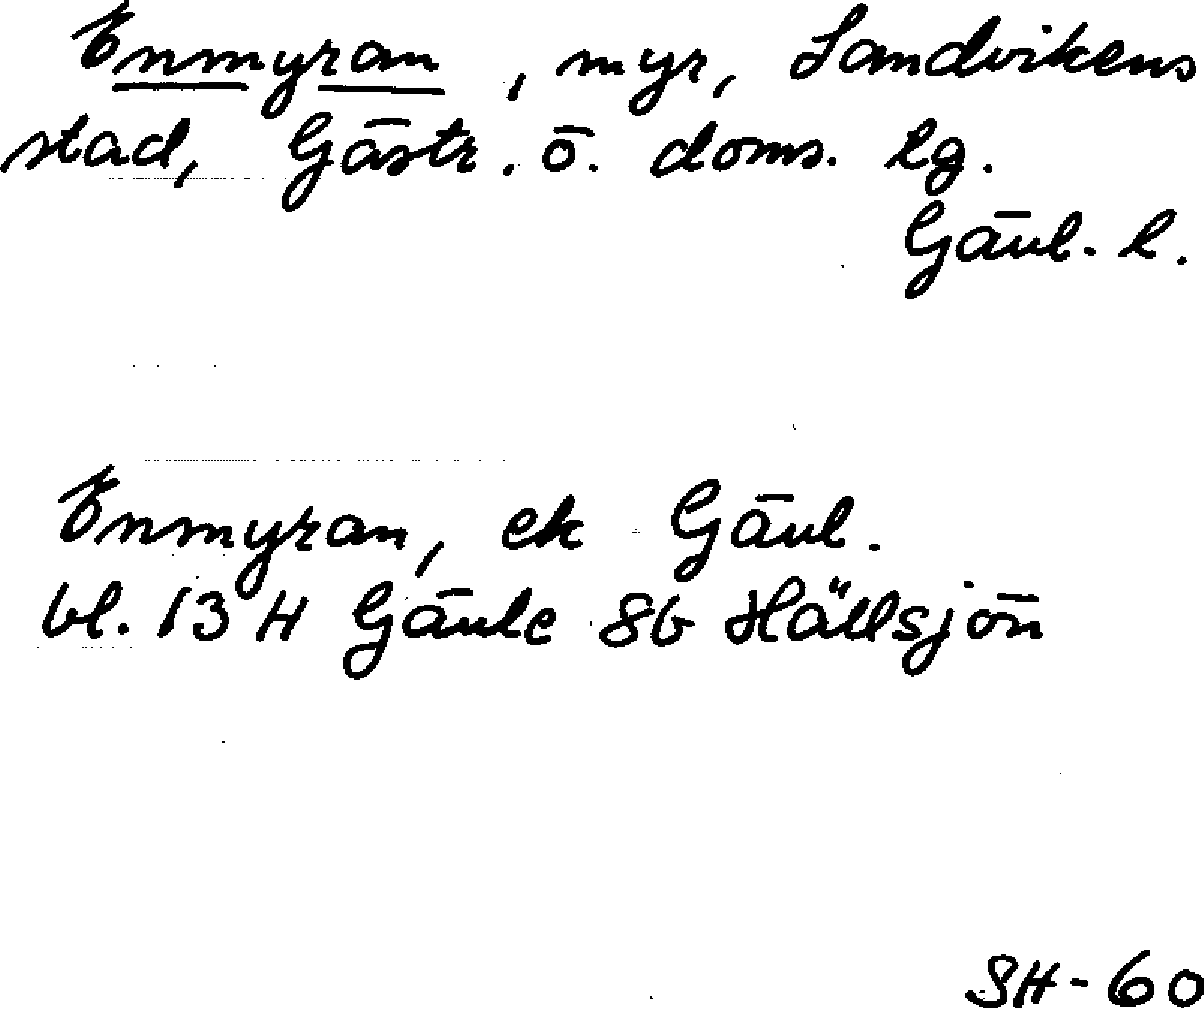 Enmyran, myr, Sandvikens
stad, Gästr. ö. doms. lg.
Gävl. l.
Enmyran, ek Gävl.
bl. 13 H Gävle 8b Hällsjön
SH-60